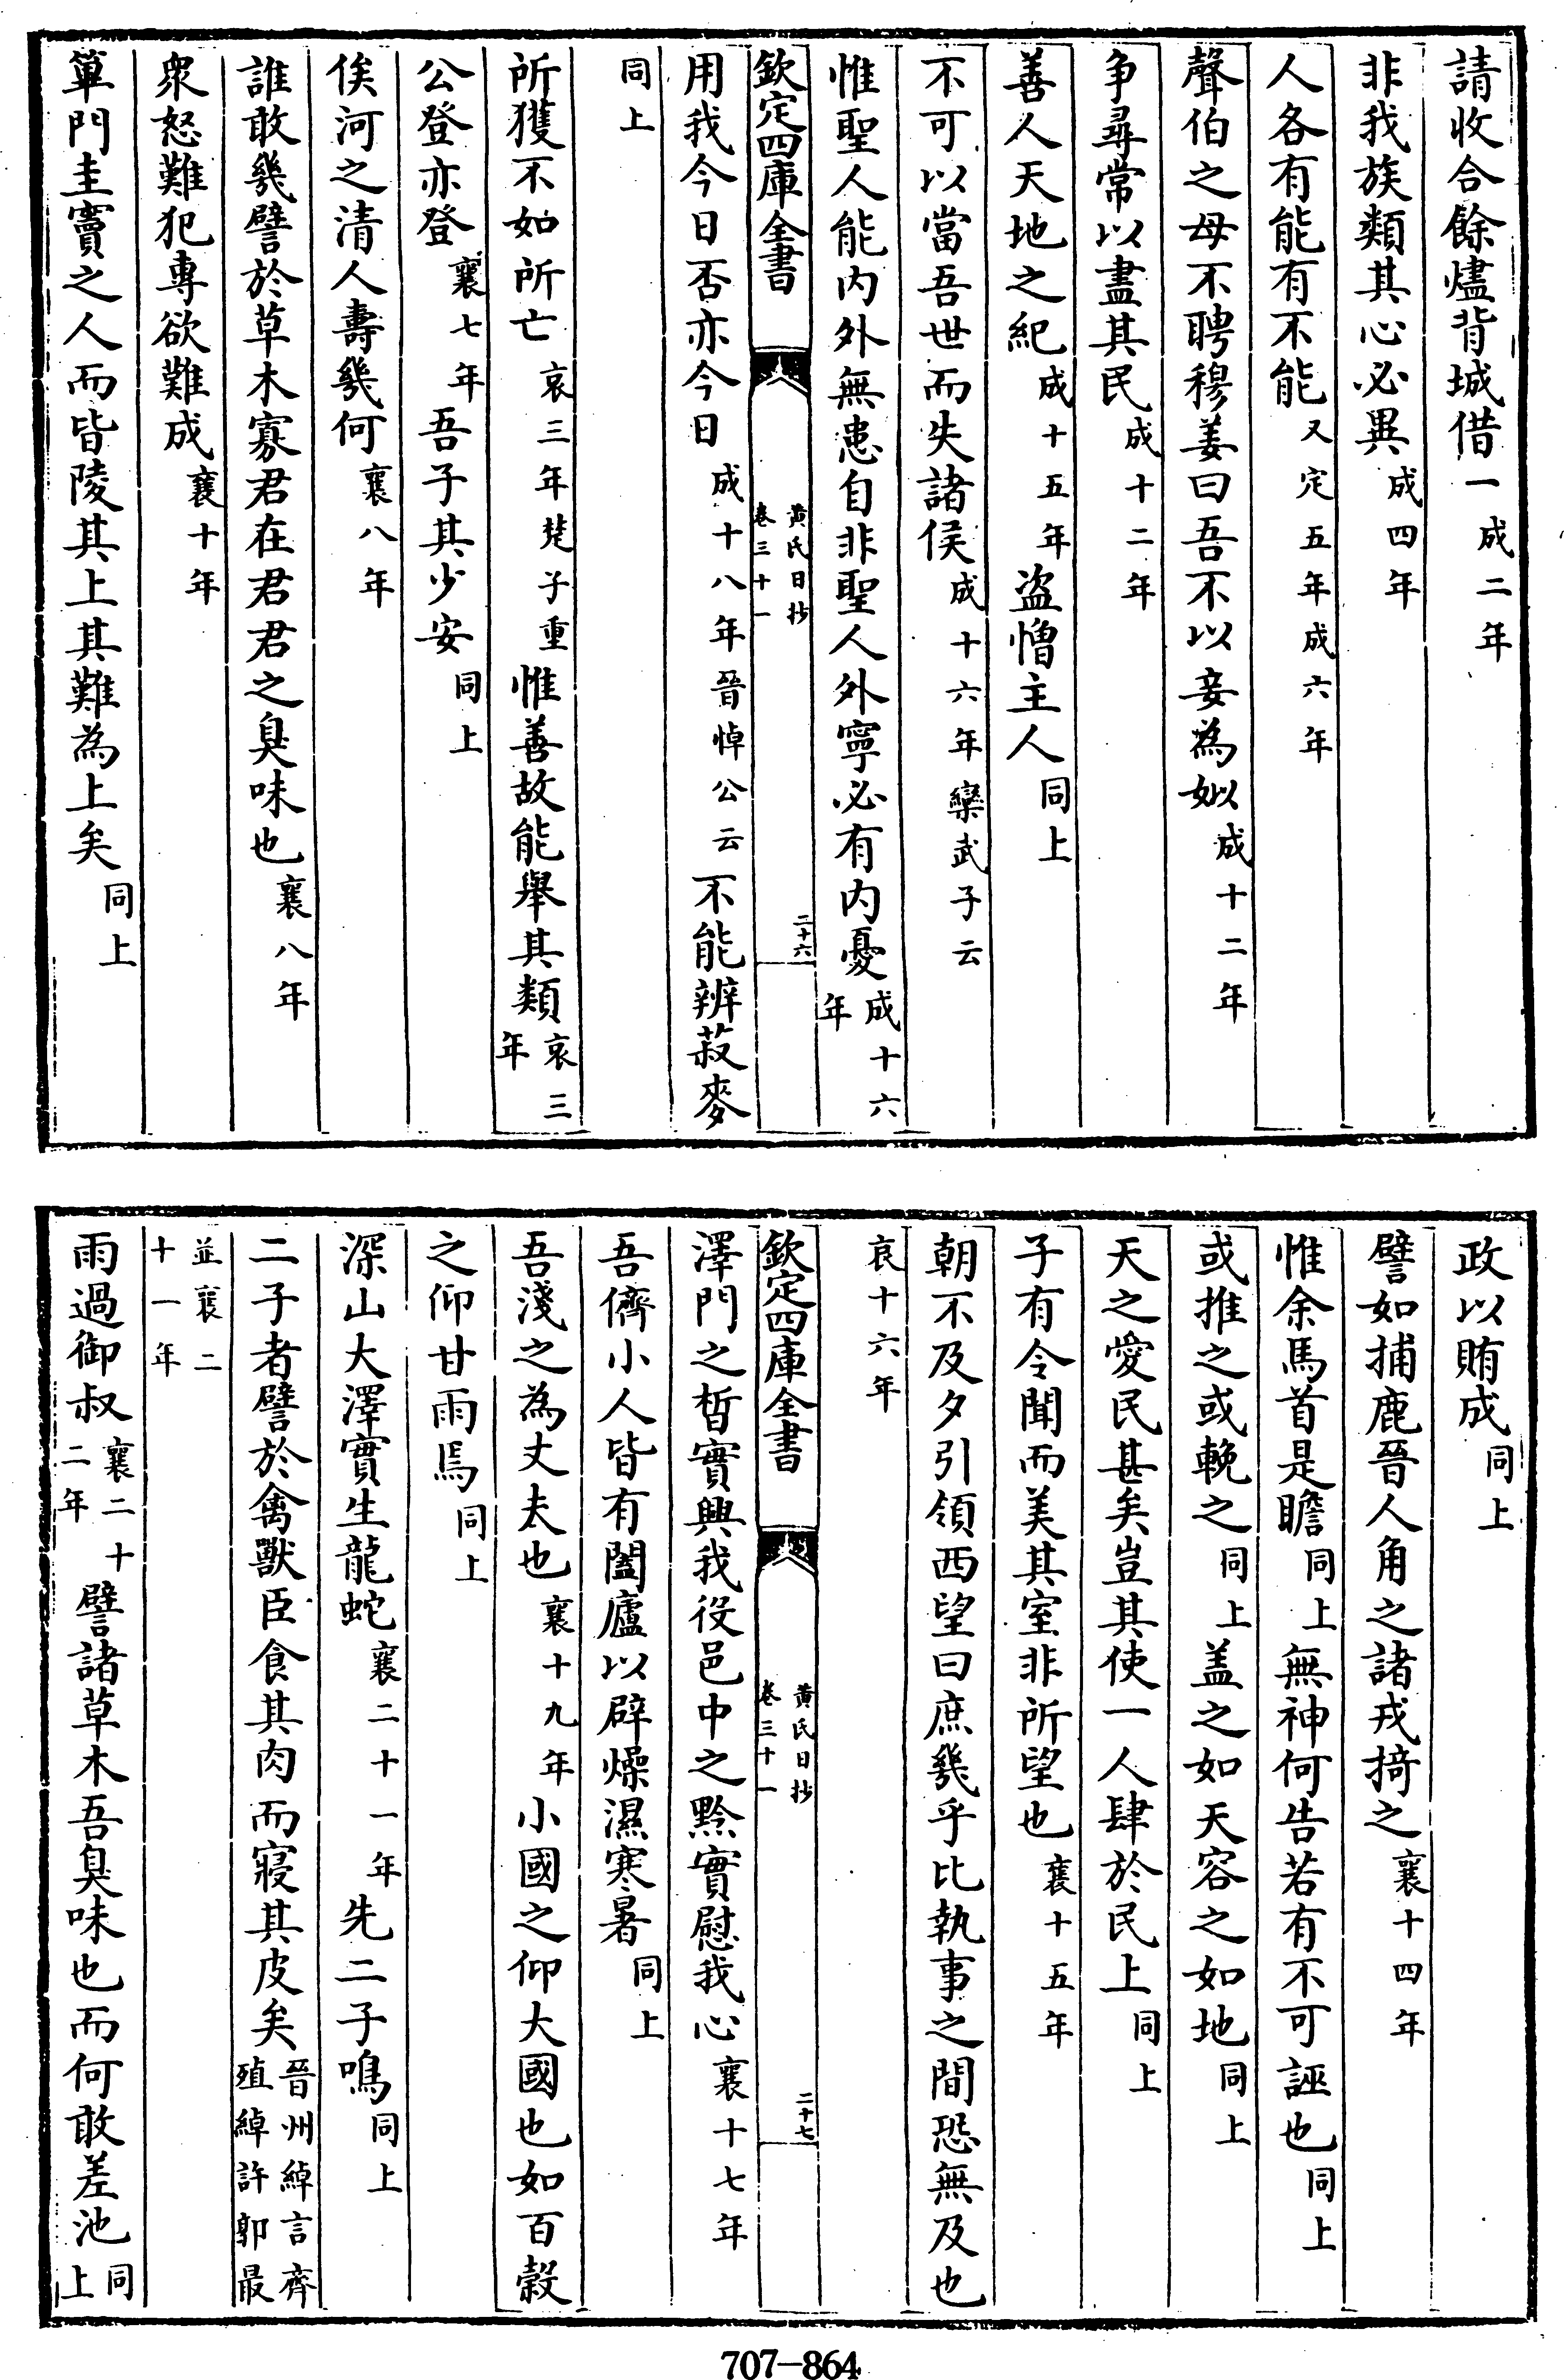 請收合餘燼背城借一成二年
非我族類其心必異成四年
人各有能有不能又定五年成六年
聲伯之母不聘穆姜曰吾不以妾為姒成十二年
争尋常以盡其民成十二年
善人天地之紀成十五年盜憎主人同上
不可以當吾世而失諸侯成十六年欒武子云
惟聖人能内外無患自非聖人外寧必有内憂成十六年
欽定四庫全書 黄氏日抄卷三十一 二十六
用我今日否亦今日成十八年晉悼公云不能辨菽麥
同上
所獲不如所亡哀三年楚子重惟善故能舉其類哀三年
公登亦登襄七年吾子其少安同上
俟河之清人壽幾何襄八年
誰敢幾譬於草木寡君在君君之臭味也襄八年
衆怒難犯專欲難成襄十年
篳門圭竇之人而皆陵其上其難為上矣同上
政以賄成同上
譬如捕鹿晉人角之諸戎掎之襄十四年
惟余馬首是瞻同上無神何告若有不可誣也同上
或推之或輓之同上盖之如天容之如地同上
天之愛民甚矣豈其使一人肆於民上同上
子有令聞而美其室非所望也襄十五年
朝不及夕引領西望曰庶幾乎比執事之間恐無及也
哀十六年
欽定四庫全書 黄氏日抄卷三十一 二十七
澤門之晳實興我役邑中之黔實慰我心襄十七年
吾儕小人皆有闔廬以辟燥濕寒暑同上
吾淺之為丈夫也襄十九年小國之仰大國也如百榖
之仰甘雨焉同上
深山大澤實生龍蛇襄二十一年先二子鳴同上
二子者譬於禽獸臣食其肉而寢其皮矣晉州綽言齊殖綽許郭最
並襄二十一年
雨過御叔襄二十二年譬諸草木吾臭味也而何敢差池同上
707-864